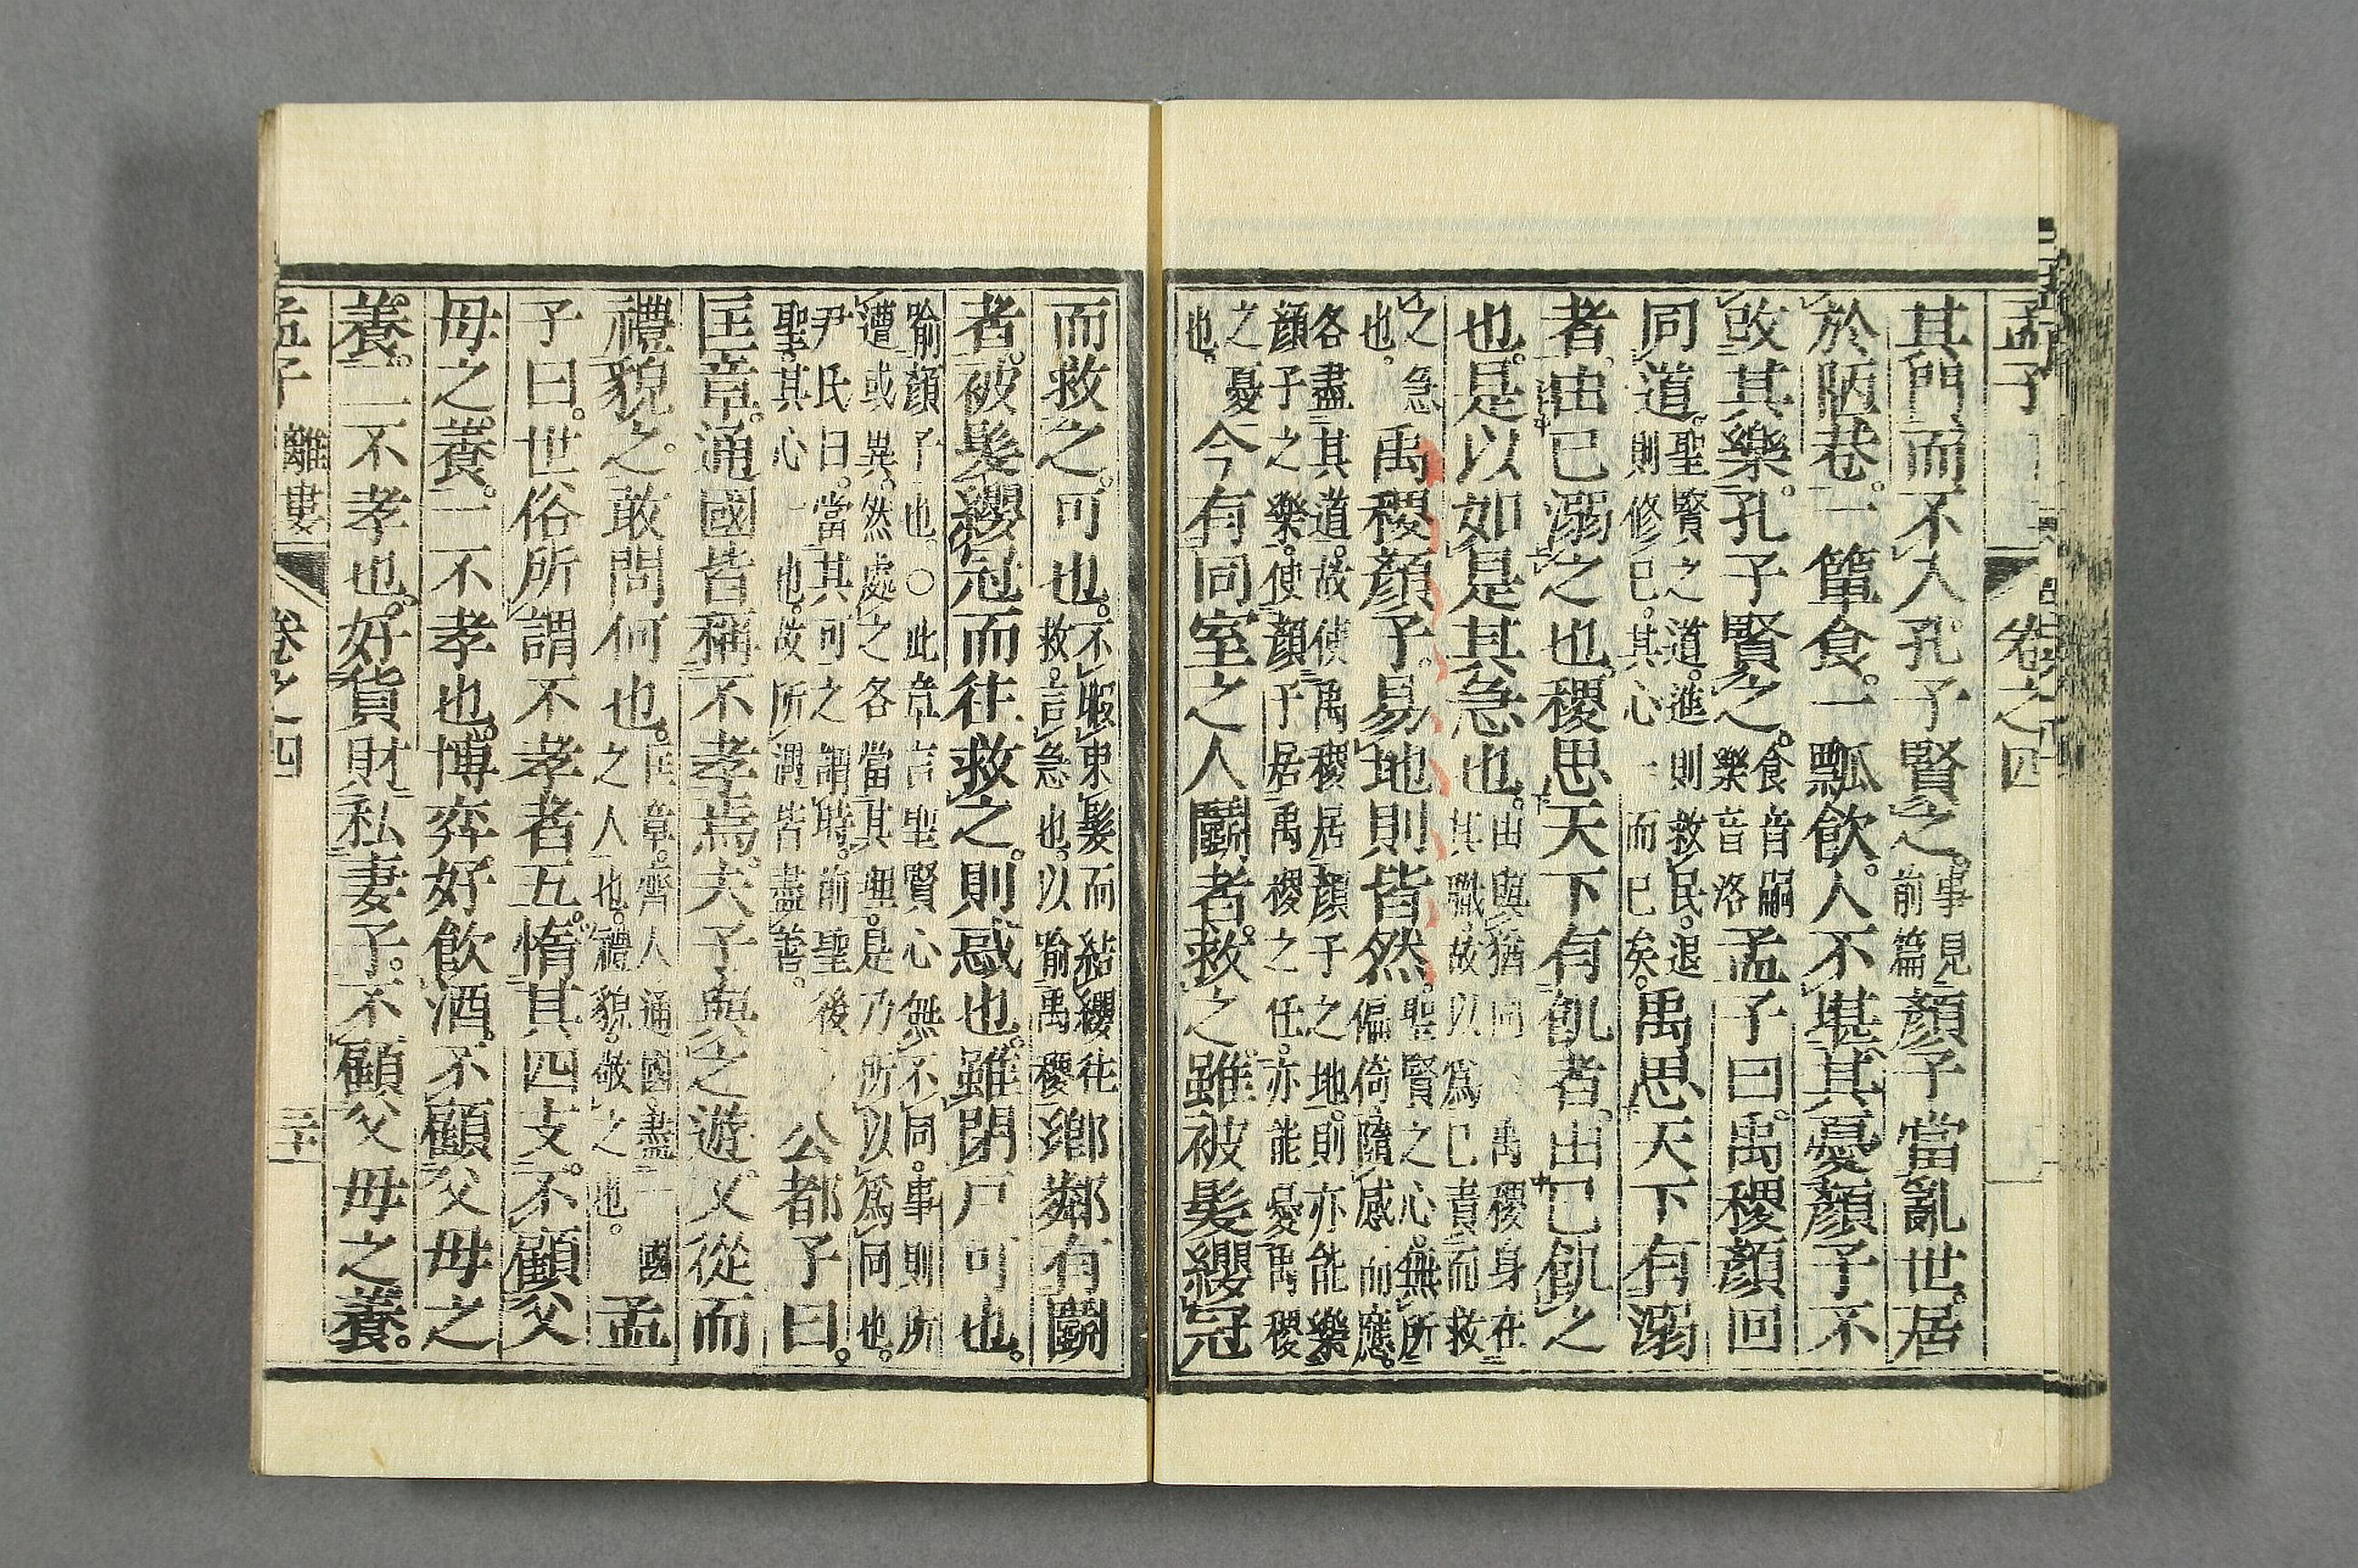 孟子 卷之四
其門而不入孔子賢之。事見前篇顏子當亂世。居
於陋巷。一簞食。一瓢飲。人不堪其憂顏子不
改其樂。孔子賢之。食音嗣樂音洛孟子曰。禹稷顏回
同道。聖賢之道。進則救民。退則修己。其心一而已矣。禹思天下有溺
者。由己溺之也。稷思天下有飢者。由己飢之
也。是以如是其急也。由與猶同禹稷身在其職。故以爲己責而救
之急也。禹稷顏子。易地則皆然。聖賢之心。無所偏倚隨感而應。
各盡其道。故使禹稷居顏子之地。則亦能樂顏子之樂。使顏子居禹稷之任。亦能憂禹稷
之憂也。今有同室之人鬭者。救之。雖被髮纓冠
而救之。可也。不暇束髮而結纓往救。言急也。以喻禹稷鄉鄰有鬭
者。被髮纓冠而往救之。則惑也。雖閉戶可也。
喻顏子也。○此章言聖賢心無不同。事則所遭或異。然處之各當其理。是乃所以爲同也。
尹氏曰。當其可之謂時。前聖後聖。其心一也。故所遇皆盡善。公都子曰。
匡章。通國皆稱不孝焉。夫子與之遊。又從而
禮貌之。敢問何也。匡章。齊人通國。盡一國之人也。禮貌。敬之也。孟
子曰。世俗所謂不孝者五。惰其四支。不顧父
母之養。一不孝也。博弈好飲酒。不顧父母之
養。二不孝也。好貨財。私妻子。不顧父母之養。
孟子 離婁 卷之四 三十